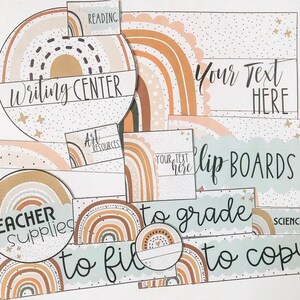 READING
Writing CENTER
Your Text
HERE
Art
RESOURCES
YOUR TEXT
here
Clip BOARDS
TEACHER
Supplies
to grade
SCIENCE
to file
to copy